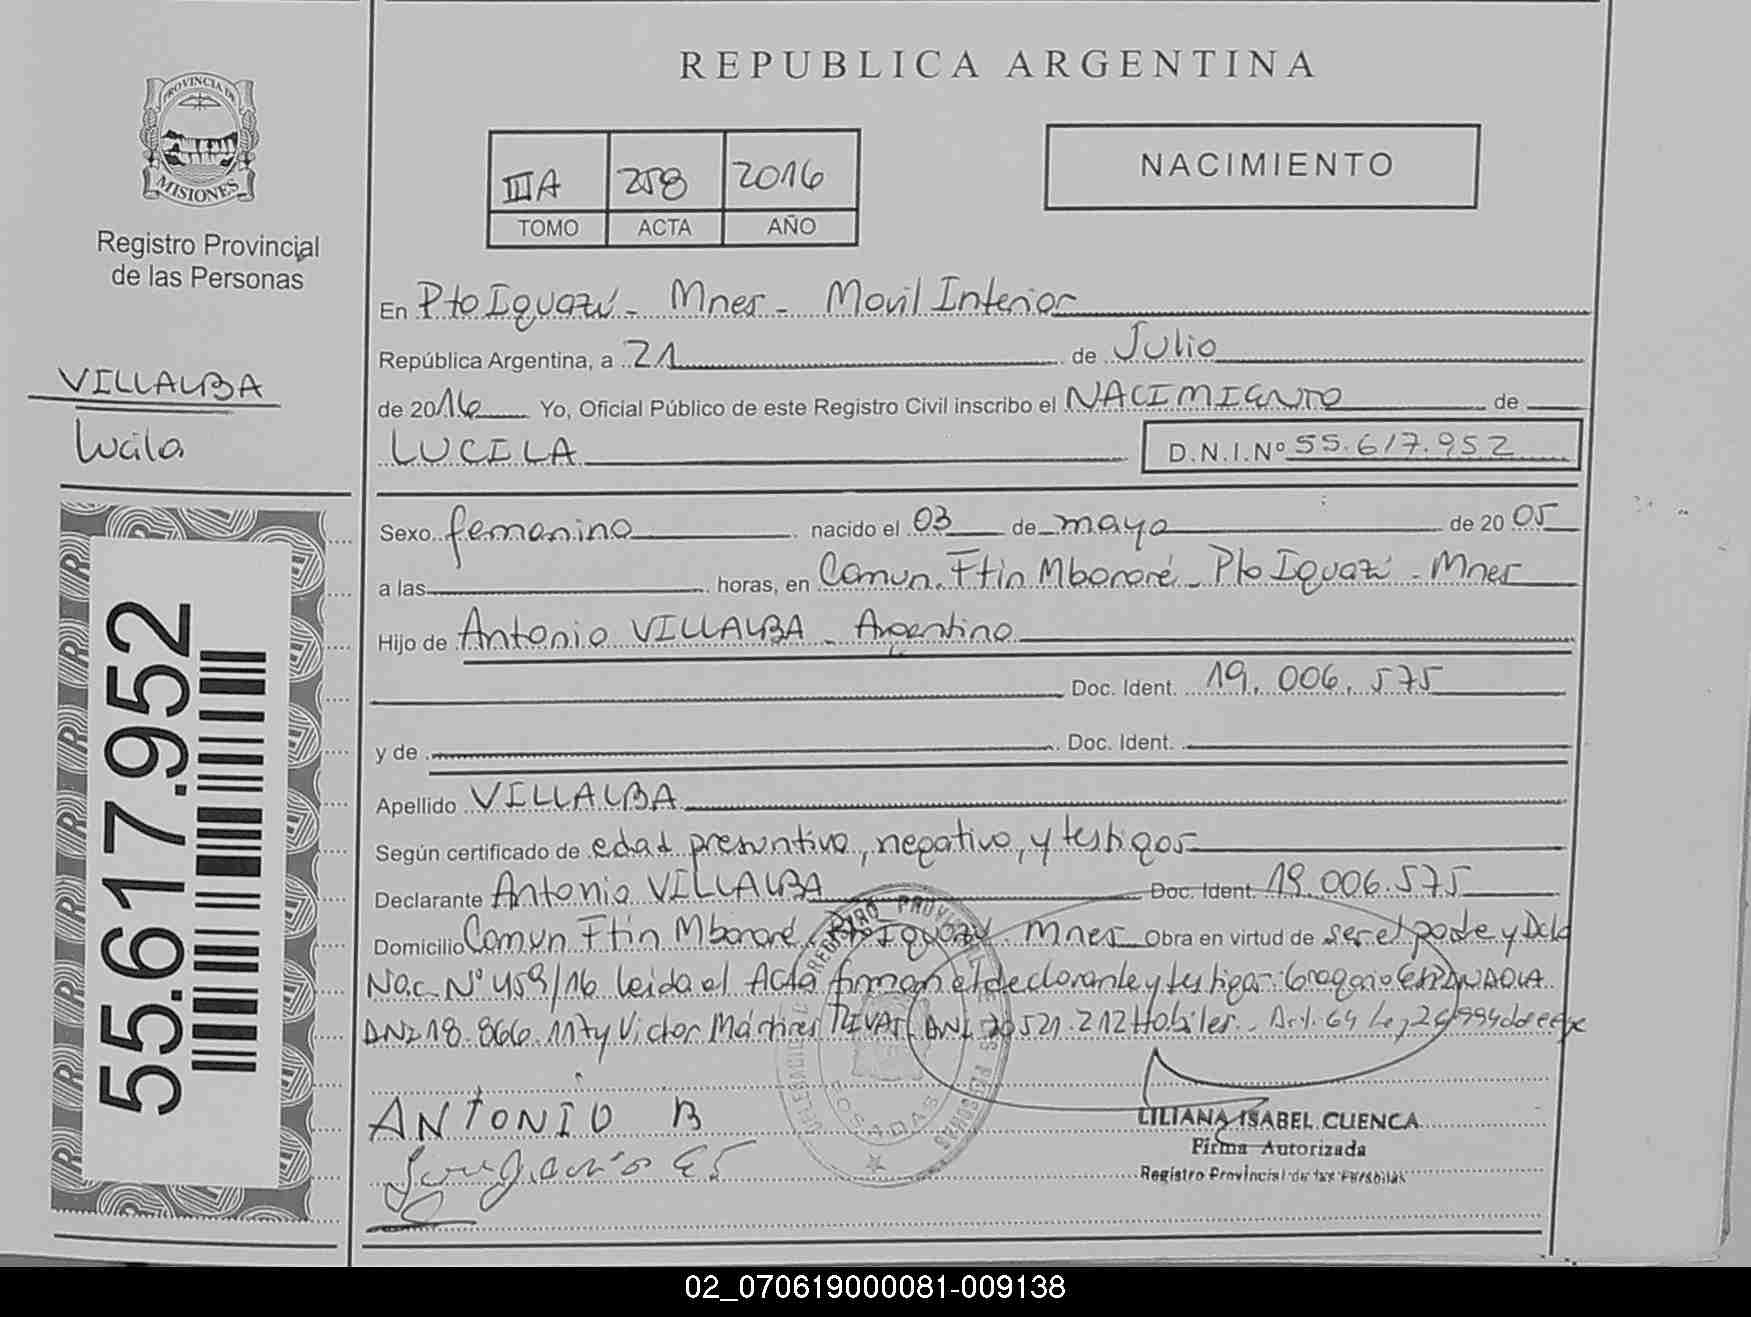 PROVINCIA DE
MISIONES
Registro Provincial
de las Personas
VILLALBA
Lucila
55.617.952
REPUBLICA ARGENTINA
IIIA 258 2016
TOMO ACTA AÑO
NACIMIENTO
En Pto Iguazú - Mnes - Movil Interior
República Argentina, a 21 de Julio
de 2016 Yo, Oficial Público de este Registro Civil inscribo el NACIMIENTO de
LUCILA D.N.I.Nº 55.617.952
Sexo femenino nacido el 03 de mayo de 2005
a las horas, en Comun. Ftin Mbororé - Pto Iguazú - Mnes
Hijo de Antonio VILLALBA - Argentino
Doc. Ident. 19.006.575
y de Doc. Ident.
Apellido VILLALBA
Según certificado de edad presuntiva, negativo, y testigos
Declarante Antonio VILLALBA Doc. Ident. 19.006.575
Domicilio Comun Ftin Mbororé, Pto Iguazú Mnes Obra en virtud de ser el padre y Dcla
Nac. Nº 459/16 leida el Acta firman el declarante y testigos: Gregorio
DNI 18.866.117 y Victor Mártires DNI 20.521.212 Hábiles. Art. 64 Ley 26994
ANTONIO B
REGISTRO PROVINCIAL DE LAS PERSONAS
POSADAS
LILIANA ISABEL CUENCA
Firma Autorizada
Registro Provincial de las Personas
02_070619000081-009138